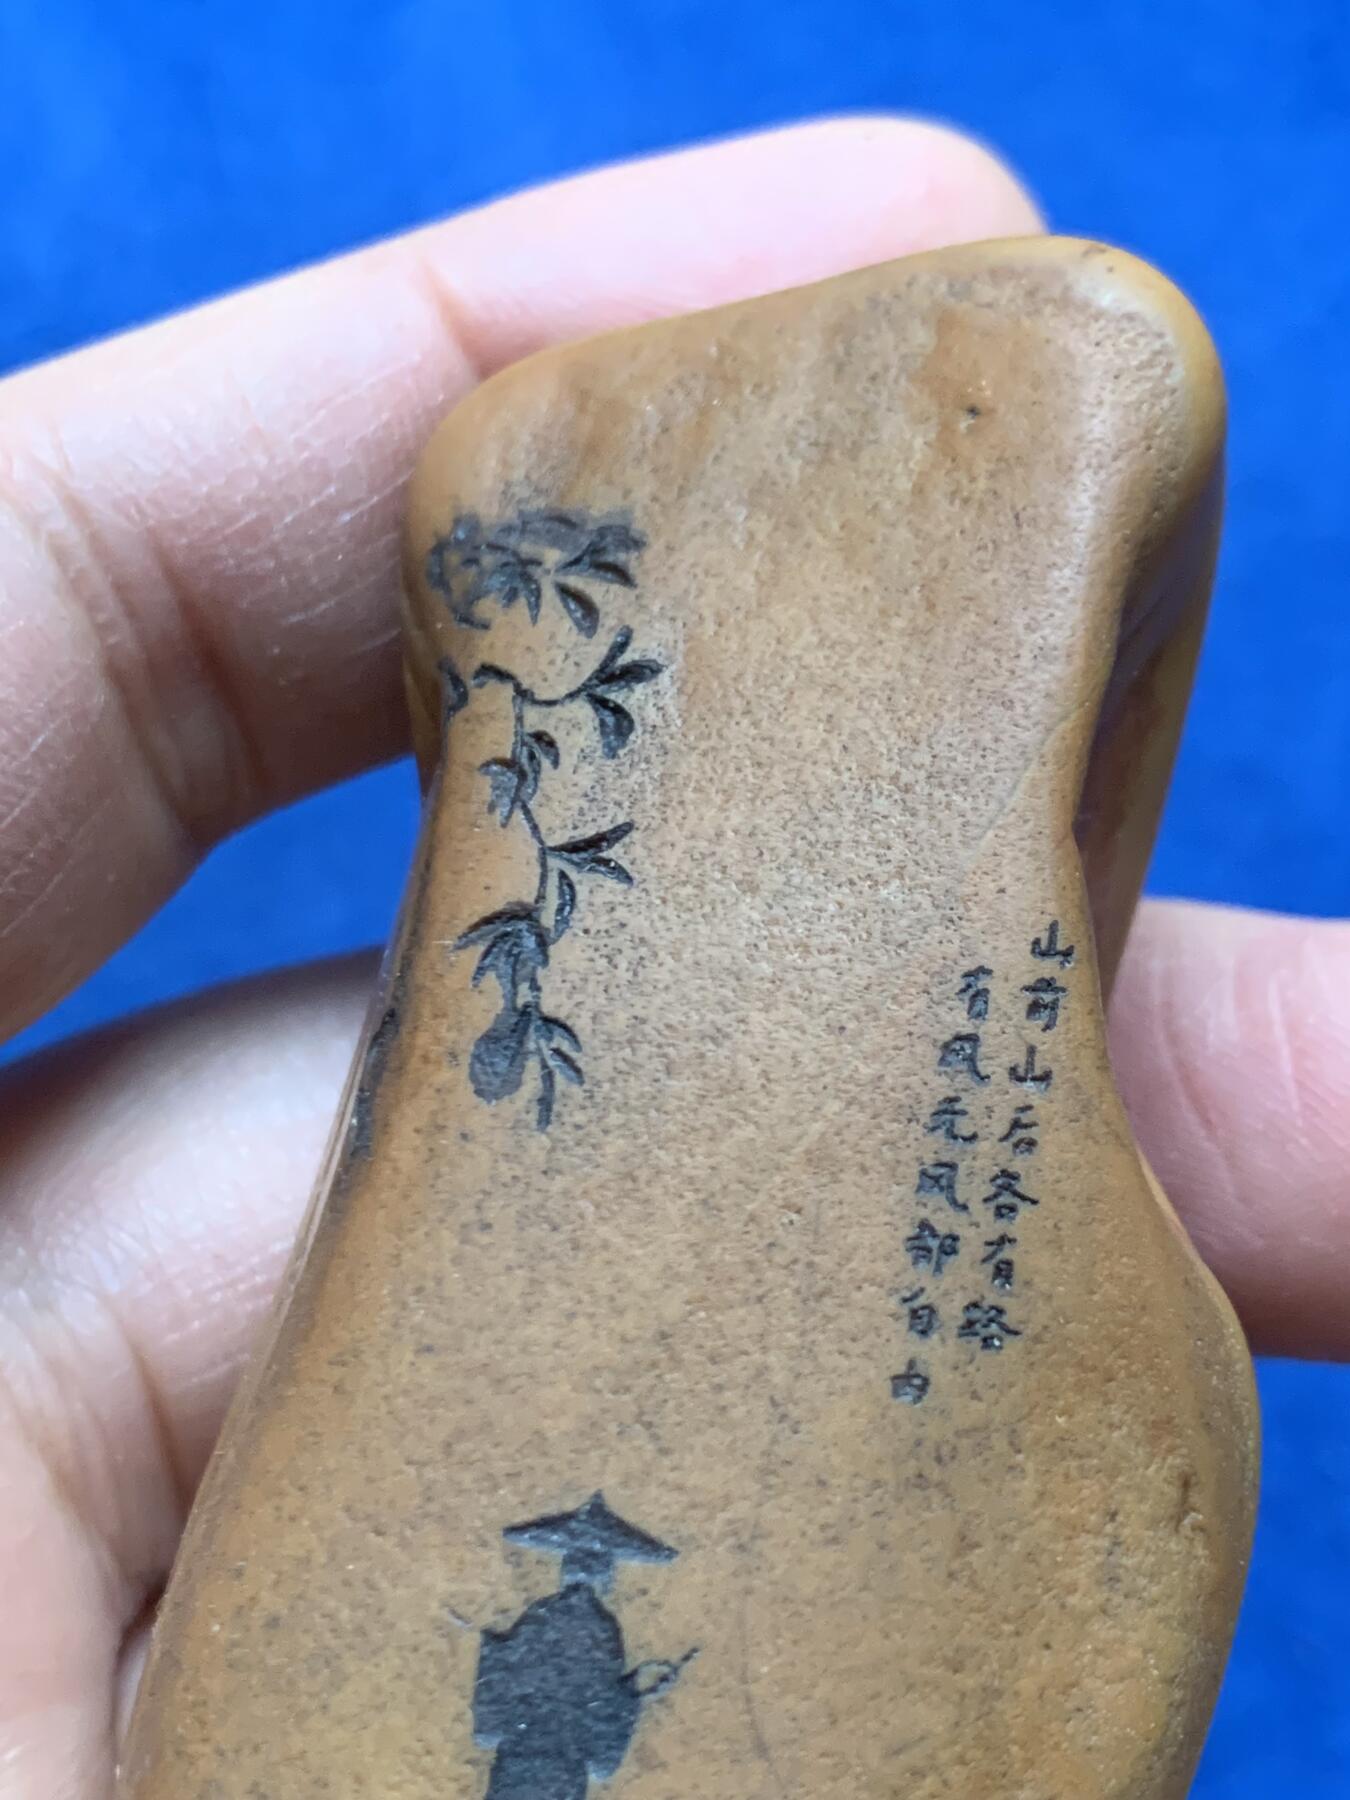 山前山后各有路
有风无风都自由